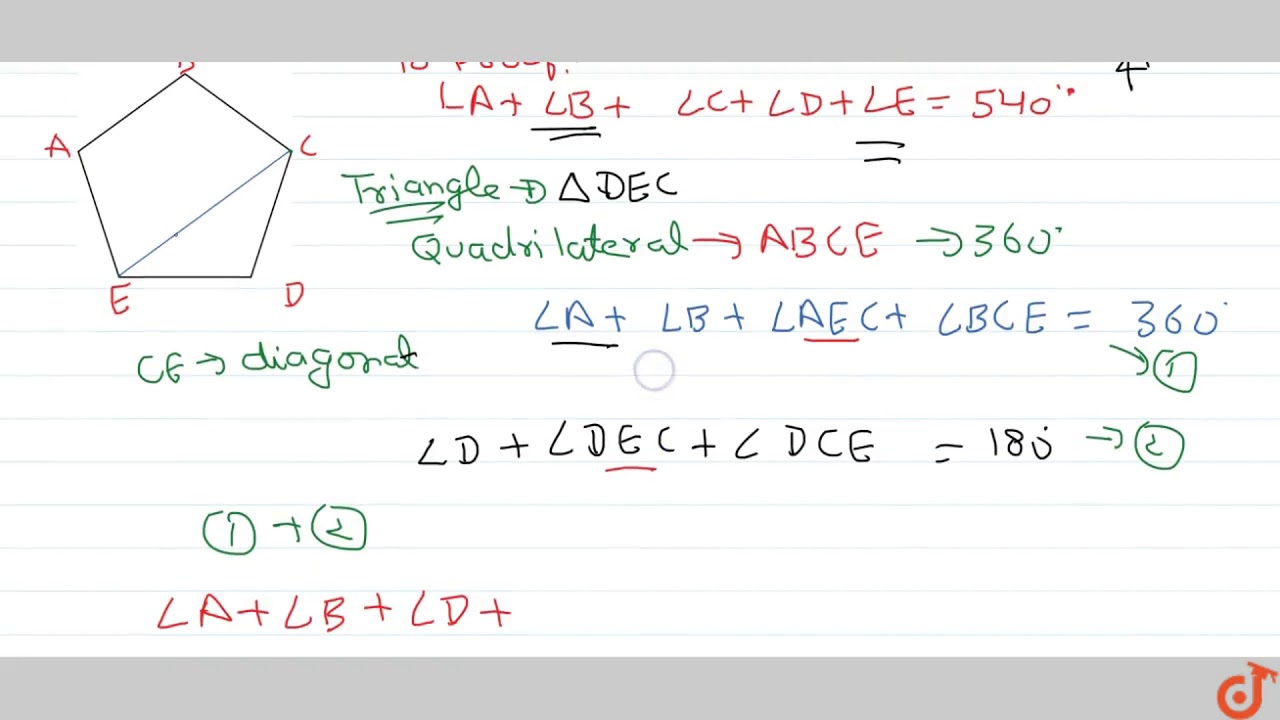 B
A
C
E
D
∠A+ ∠B+ ∠C+ ∠D+∠E= 540°
Triangle → △DEC
Quadrilateral → ABCE → 360°
∠A+ ∠B+ ∠AEC+ ∠BCE = 360°
→ ①
CE → diagonal
∠D + ∠DEC + ∠DCE = 180° → ②
① + ②
∠A+∠B+∠D+